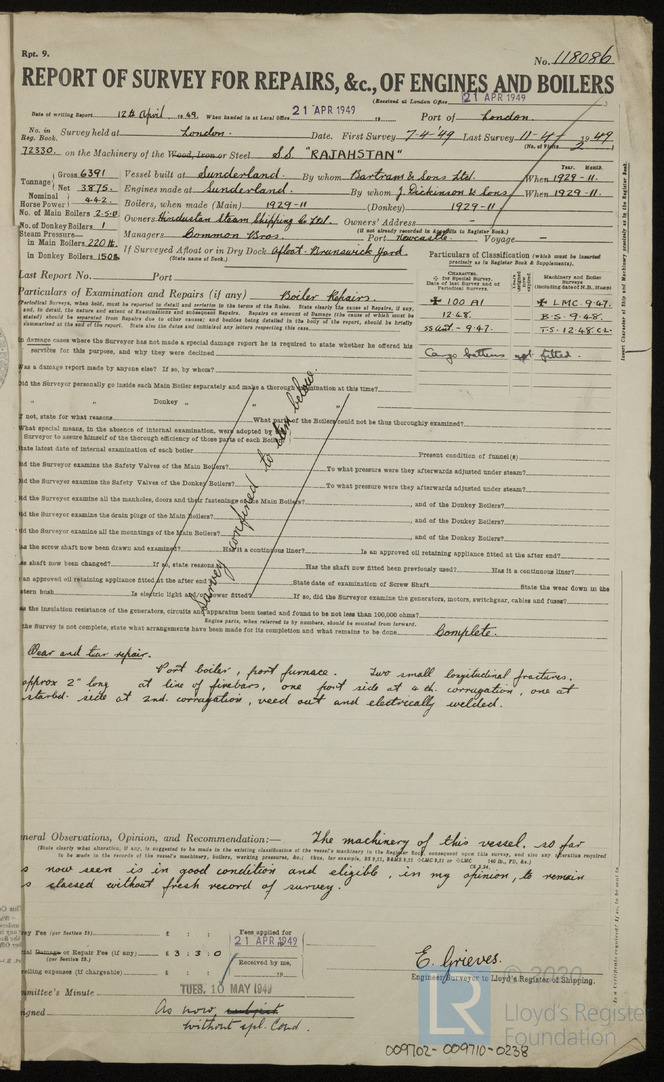 Rpt. 9.
No. 118086
REPORT OF SURVEY FOR REPAIRS, &c., OF ENGINES AND BOILERS
(Received at London Office 21 APR 1949 )
Date of writing Report 12th April 1949. When handed in at Local Office 21 APR 1949 Port of London.
No. in Reg. Book. Survey held at London. Date. First Survey 7-4-49 Last Survey 11-4- 1949
(No. of Visits 2 )
72330. on the Machinery of the Wood, Iron or Steel S.S. "RAJAHSTAN"
Tonnage Gross 6391 Vessel built at Sunderland. By whom Bartram & Sons Ltd. When 1929-11.
Net 3875. Engines made at Sunderland. By whom J. Dickinson & Sons When 1929-11.
Nominal Horse Power 442. Boilers, when made (Main) 1929-11 (Donkey) 1929-11
No. of Main Boilers 2.S.B. Owners Hindustan Steam Shipping Co Ltd. Owners' Address -
(if not already recorded in Appendix to Register Book.)
No. of Donkey Boilers 1 Managers Common Bros. Port Newcastle. Voyage -
Steam Pressure
in Main Boilers 220 lb. If Surveyed Afloat or in Dry Dock Afloat. Brunswick Yard
(State name of Dock.)
in Donkey Boilers 150 lb.
Particulars of Classification (which must be inserted precisely as in Register Book & Supplements).
Last Report No. Port
Particulars of Examination and Repairs (if any) Boiler Repairs.
CHARACTER. for Special Survey. Date of last Survey and of Periodical Surveys.
Machinery and Boiler Surveys (including date of N.B., if any)
✠ 100 A1 ✠ LMC 9.47.
12.48. B.S. 9.48.
9.47. T.S. 12.48.CL.
Cargo battens not fitted.
In damage cases where the Surveyor has not made a special damage report he is required to state whether he offered his
services for this purpose, and why they were declined
Was a damage report made by anyone? If so, by whom?
Did the Surveyor personally go inside each Main Boiler separately and make a thorough examination at this time?
" " Donkey " " "
If not, state for what reasons What parts of the Boilers could not be thus thoroughly examined?
What special means, in the absence of internal examination, were adopted by the
Surveyor to assure himself of the thorough efficiency of those parts of each Boiler
State latest date of internal examination of each boiler Present condition of funnel(s)
Did the Surveyor examine the Safety Valves of the Main Boilers? To what pressure were they afterwards adjusted under steam?
Did the Surveyor examine the Safety Valves of the Donkey Boilers? To what pressure were they afterwards adjusted under steam?
Did the Surveyor examine all the manholes, doors and their fastenings of the Main Boilers? , and of the Donkey Boilers?
Did the Surveyor examine the drain plugs of the Main Boilers? , and of the Donkey Boilers?
Did the Surveyor examine all the mountings of the Main Boilers? , and of the Donkey Boilers?
Has the screw shaft now been drawn and examined? Has it a continuous liner? Is an approved oil retaining appliance fitted at the after end?
Has shaft now been changed? If so, state reasons Has the shaft now fitted been previously used? Has it a continuous liner?
an approved oil retaining appliance fitted at the after end State date of examination of Screw Shaft State the wear down in the
stern bush Is electric light and/or power fitted? If so, did the Surveyor examine the generators, motors, switchgear, cables and fuses?
Has the insulation resistance of the generators, circuits and apparatus been tested and found to be not less than 100,000 ohms?
Engine parts, when referred to by numbers, should be counted from forward.
Survey confined to item below.
the Survey is not complete, state what arrangements have been made for its completion and what remains to be done. Complete.
Wear and tear repair.
Port boiler, port furnace. Two small longitudinal fractures,
approx 2" long at line of firebars, one port side at 4th. corrugation, one at
starbd. side at 2nd. corrugation, veed out and electrically welded.
General Observations, Opinion, and Recommendation:— The machinery of this vessel, so far
(State clearly what alteration, if any, is suggested to be made in the existing classification of the vessel's machinery in the Register Book, consequent upon this survey, and also any alteration required
to be made in the records of the vessel's machinery, boilers, working pressures, &c.; thus, for example,
as now seen is in good condition and eligible, in my opinion, to remain
as classed without fresh record of survey.
Survey Fee (per Section 29) £ : : Fees applied for
21 APR 1949
Special Damage or Repair Fee (if any) £ 3 : 3 : 0
(per Section 29.)
Received by me,
Travelling expenses (if chargeable) £ : : 19
E. Grieves.
Engineer Surveyor to Lloyd's Register of Shipping.
Committee's Minute TUES. 10 MAY 1949
Assigned As now, subject
without spl. Cond.
© 2020
LR
Lloyd's Register
Foundation
009702-009710-0238
Insert Character of Ship and Machinery precisely as in the Register Book.